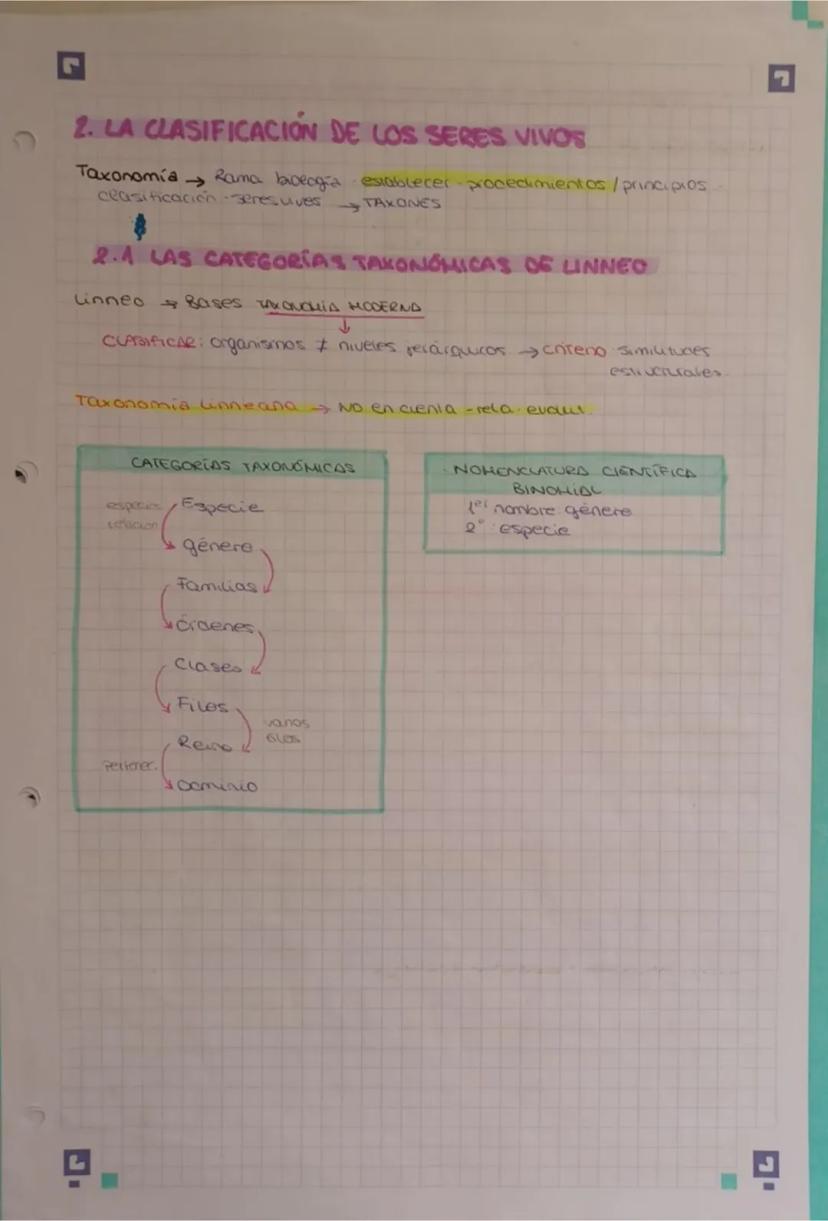 2. LA CLASIFICACIÓN DE LOS SERES VIVOS
Taxonomía → Rama biología establecer procedimientos / principios
clasificación seres vivos → TAXONES
2.1 LAS CATEGORÍAS TAXONÓMICAS DE LINNEO
Linneo → Bases TAXONOMÍA MODERNA
CLASIFICAR: organismos ≠ niveles jerárquicos → criterio similitudes
estructurales
Taxonomía Linneana → NO en cuenta - rela. evolut.
CATEGORÍAS TAXONÓMICAS
especies Especie
relacion
género
Familias
Órdenes
Clases
Filos
varios
filos
Reino
Pertenec.
Dominio
NOMENCLATURA CIENTÍFICA
BINOMIAL
1er nombre género
2º especie